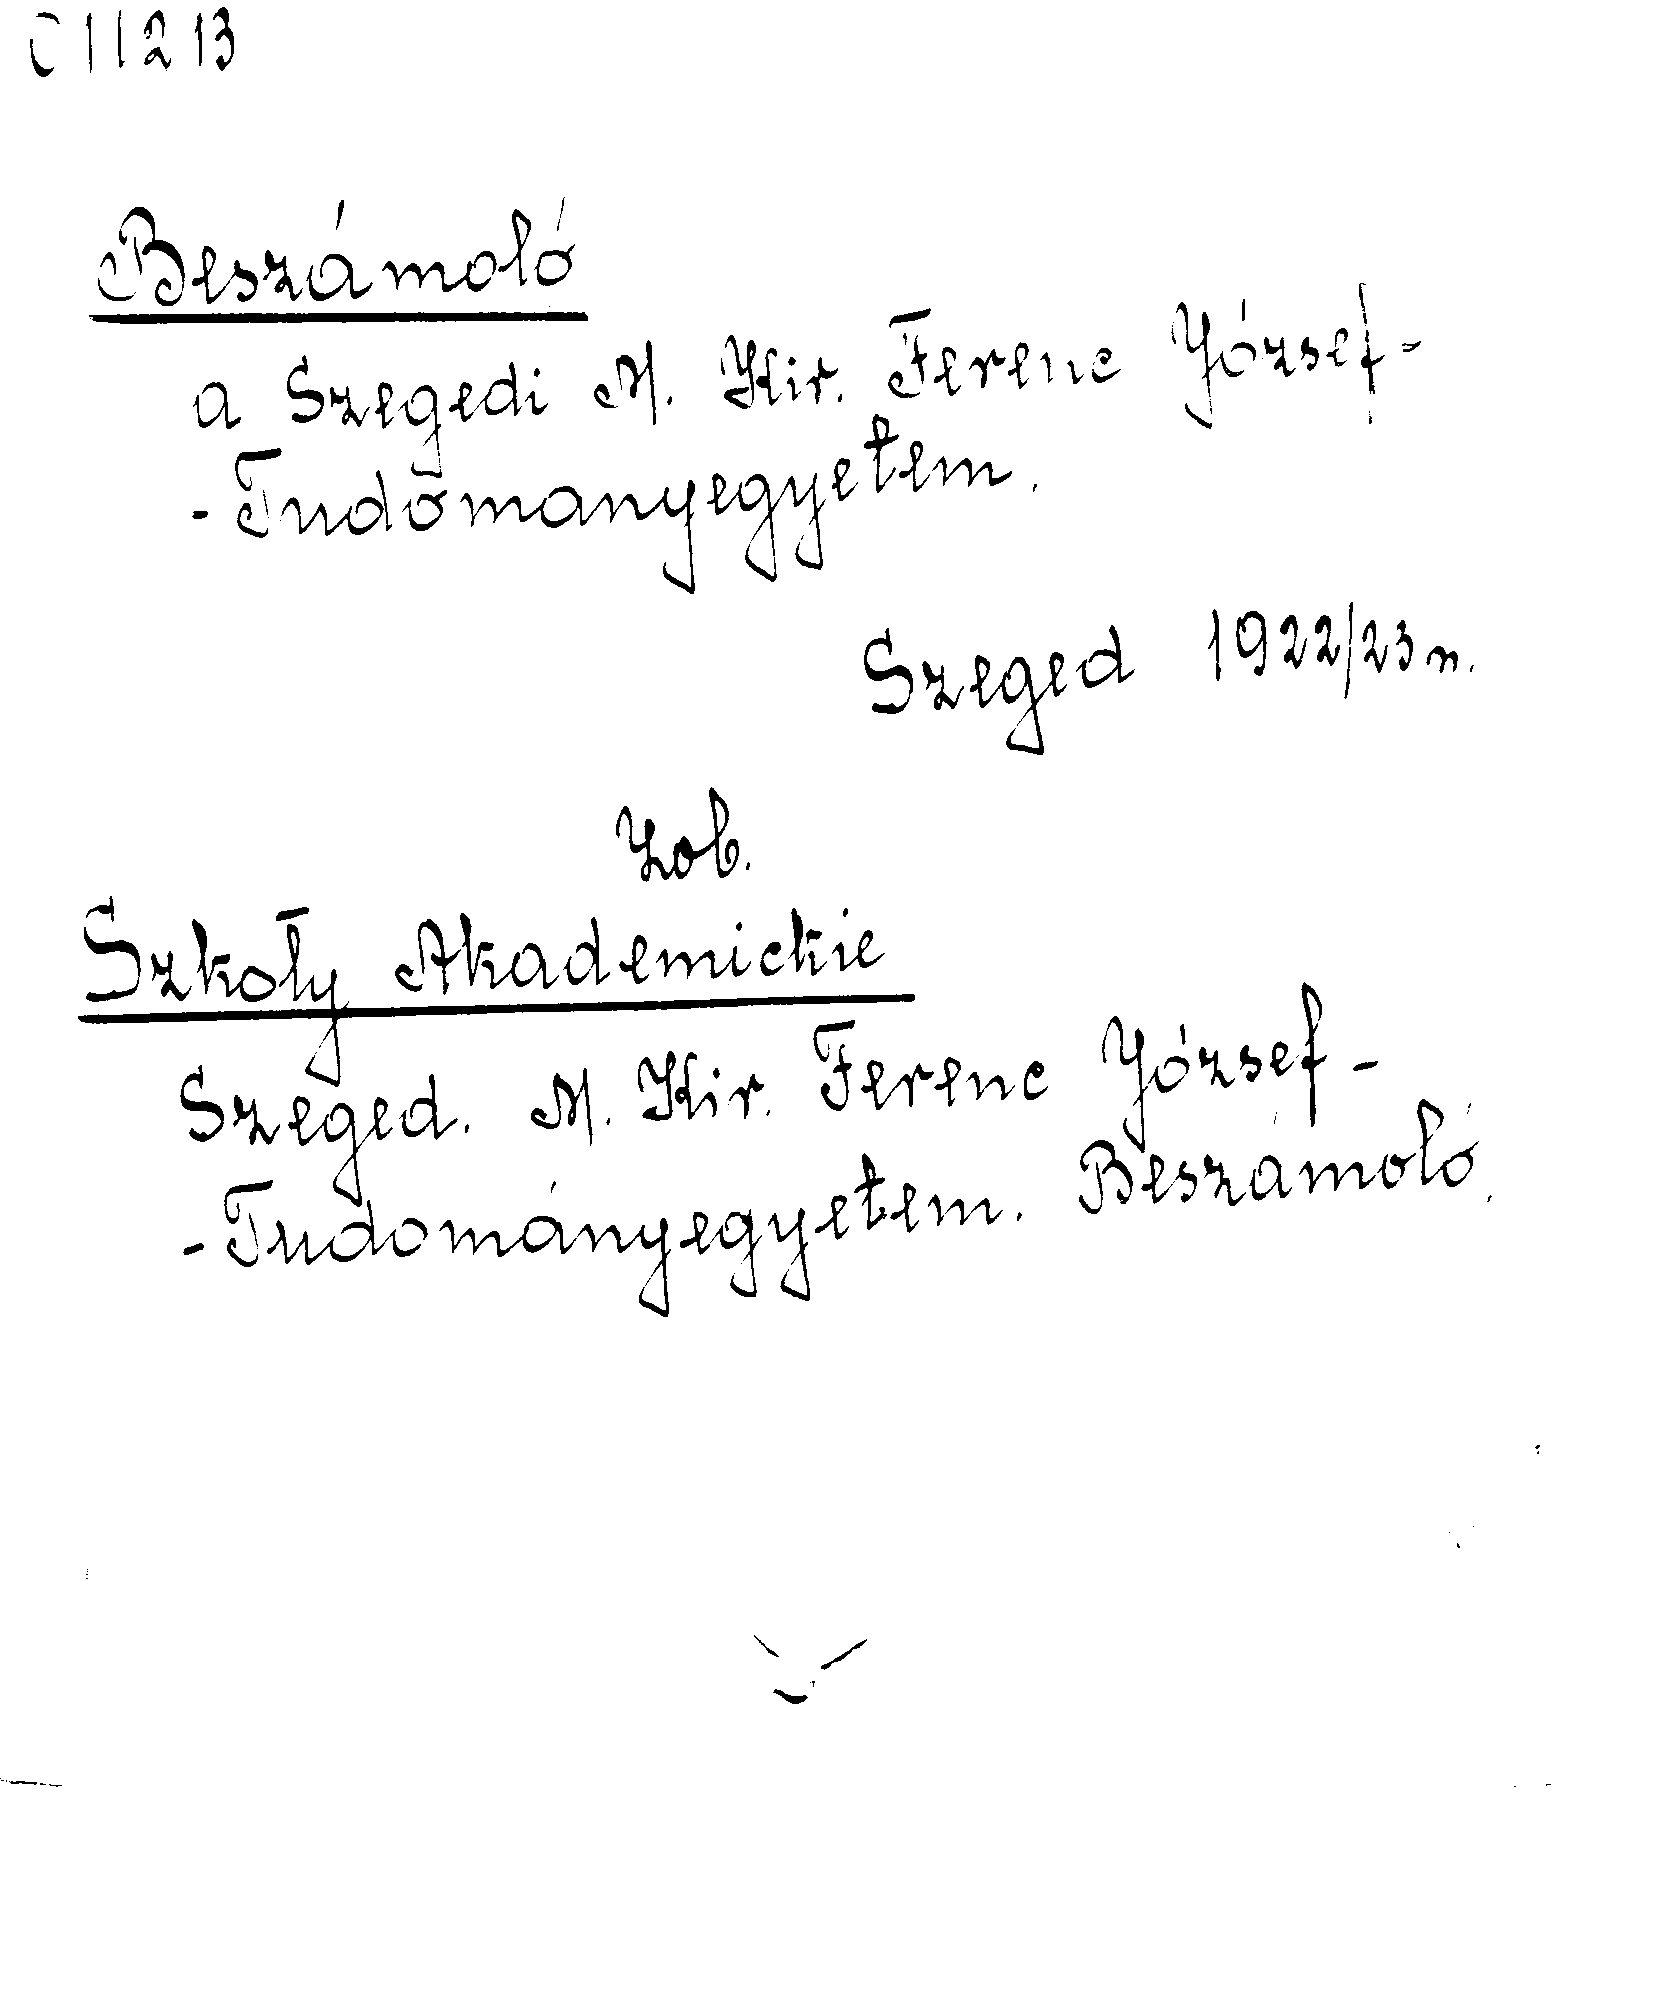 C 11213
Beszámoló
a Szegedi M. Kir. Ferenc József-
-Tudōmanyegyetem.
Szeged 1922/23 n.
Zob.
Szkoły Akademickie
Szeged. M. Kir. Ferenc József-
-Tudományegyetem. Beszámoló.